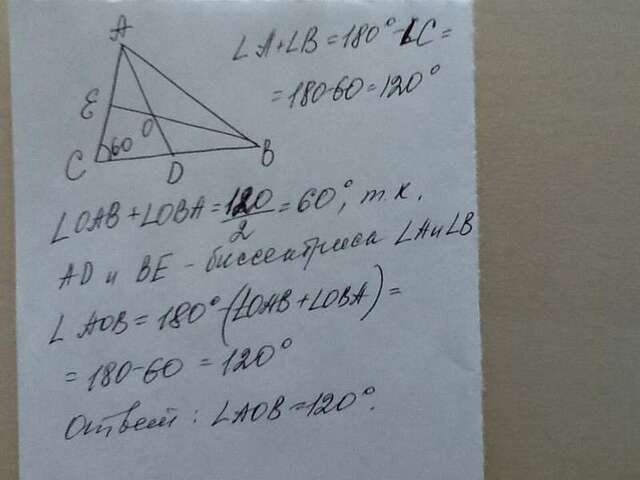 A
∠A+∠B=180°-∠C=
=180-60=120°
E
O
C 60
D
B
∠OAB+∠OBA=120/2=60°, т.к.
AD и BE - биссектриса ∠A и ∠B
∠AOB=180°-(∠OAB+∠OBA)=
=180-60=120°
Ответ: ∠AOB=120°.